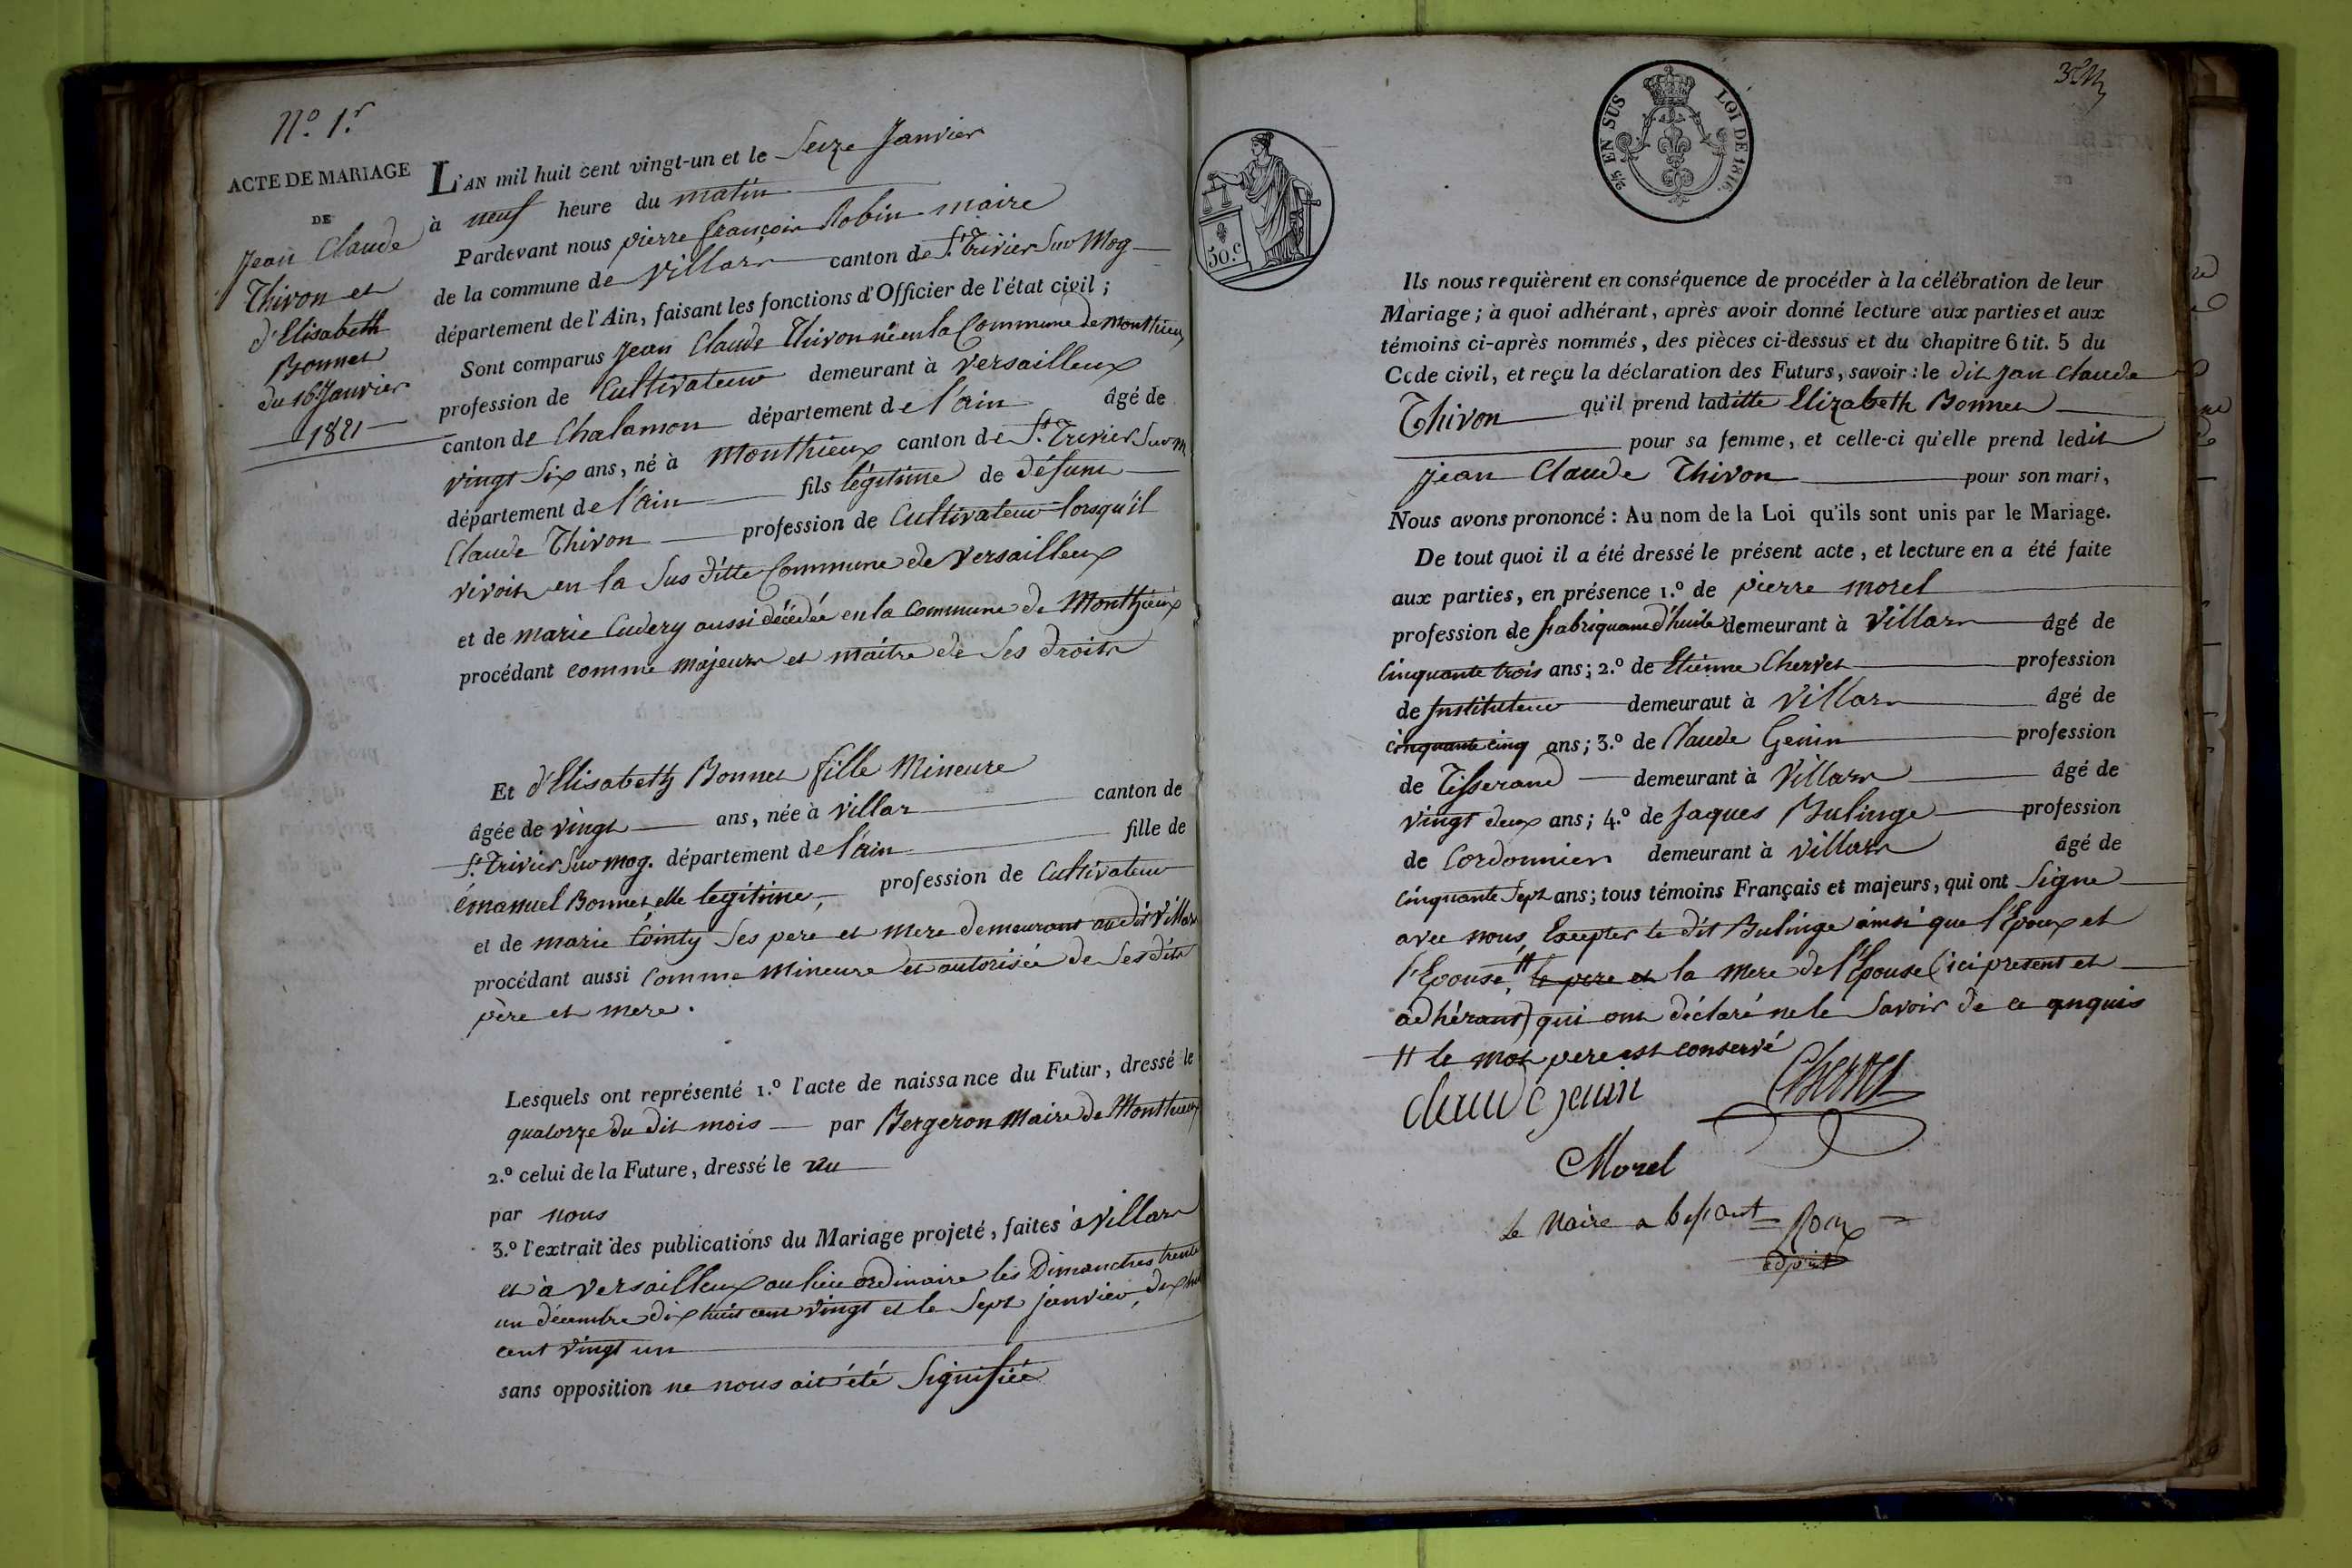 N.o 1.r
ACTE DE MARIAGE
DE
Jean Claude
Thivon et
d'Elisabeth
Bonnet
du 16 Janvier
1821
L'AN mil huit cent vingt-un et le Seize Janvier
à neuf heure du matin
Pardevant nous pierre françois Robin maire
de la commune de Villars canton de St. Trivier Sur Mog
département de l'Ain, faisant les fonctions d'Officier de l'état civil ;
Sont comparus Jean Claude Thivon né en la Commune de Monthieux
profession de Cultivateur demeurant à Versailleux
canton de Chalamon département de l'ain âgé de
vingt Six ans, né à Monthieux canton de St. Trivier Sur M
département de l'ain fils légitime de défunt
Claude Thivon profession de Cultivateur lorsqu'il
vivoit en la Sus ditte Commune de Versailleux
et de marie Cudery aussi décédée en la Commune de Monthieux
procédant comme majeurs et maitre de Ses droits
Et d'Elisabeth Bonnet fille Mineure
âgée de vingt ans, née à villar canton de
St. Trivier Sur mog. département de l'ain fille de
émanuel Bonnet elle legitime, profession de Cultivateur
et de marie Cointy Ses pere et mere demeurant audit Villars
procédant aussi Comme Mineure et autorisée de Ses dits
père et mere.
Lesquels ont représenté 1.o l'acte de naissance du Futur, dressé le
quatorze du dit mois par Bergeron Maire de Monthieux
2.o celui de la Future, dressé le vu
par nous
3.o l'extrait des publications du Mariage projeté, faites à Villars
et à Versailleux au lieu ordinaire les Dimanches trente
un décembre dix huit cent vingt et le Sept janvier, dix huit
cent vingt un
sans opposition ne nous ait été Signifiée
5/5 EN SUS LOI DE 1816.
50.c
Ils nous requièrent en conséquence de procéder à la célébration de leur
Mariage ; à quoi adhérant, après avoir donné lecture aux parties et aux
témoins ci-après nommés, des pièces ci-dessus et du chapitre 6 tit. 5 du
Code civil, et reçu la déclaration des Futurs, savoir : le dit Jan Claude
Thivon qu'il prend laditte Elizabeth Bonnet
pour sa femme, et celle-ci qu'elle prend ledit
Jean Claude Thivon pour son mari,
Nous avons prononcé : Au nom de la Loi qu'ils sont unis par le Mariage.
De tout quoi il a été dressé le présent acte, et lecture en a été faite
aux parties, en présence 1.o de pierre morel
profession de fabriquant d'huile demeurant à Villars âgé de
Cinquante trois ans ; 2.o de Etienne Chervet profession
de Instituteur demeuraut à Villars âgé de
cinquante cinq ans ; 3.o de Claude Genin profession
de Tisserand demeurant à Villars âgé de
vingt deux ans ; 4.o de Jaques Bulinge profession
de Cordonnier demeurant à Villars âgé de
Cinquante Sept ans ; tous témoins Français et majeurs, qui ont Signe
avec nous, Excepter le dit Bulinge ainsi que l'Epoux et
l'Epouse, # le pere et la mere de l'Epouse (ici present et
adhérant) qui ont déclaré ne le Savoir de ce enquis
# le mot pere est conservé
claude jenin
Chervet
Morel
Le Maire absent
adjoint